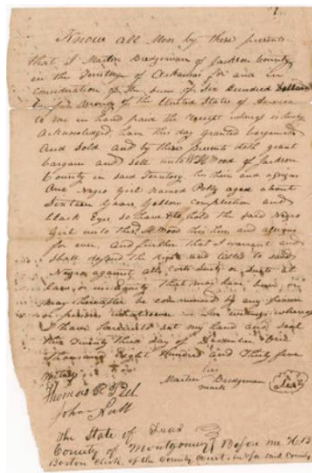 Know all Men by these presents
that, I Martin Bridgeman of Jackson County
in the Territory of Arkansas for and in
consideration of the sum of Six Hundred Dollars
of the United States of America
to me in hand paid the Receipt whereof is hereby
Acknowledged have this day granted bargained
And Sold and by these presents doth grant
bargain and sell unto Wood of Jackson
County in said Territory his heirs and assigns
One Negro Girl named Polly aged about
Sixteen Years Yellow complection and
black Eyes to have & to hold the said Negro
Girl unto the Wood his heirs and assigns
for ever. And further that I warrant and
shall defend the right and title to said
Negro against all
law, or in Equity that may have been, or
may hereafter be commenced by any person
or persons whatsoever In witness whereof
I have hereunto set my hand and seal
this Twenty third day of December One
Thousand Eight Hundred and Thirty five
his
Martin Bridgeman
mark
Seal
Thomas
John
The State of Texas
County of Montgomery Before me
Clerk of the County Court in for said County